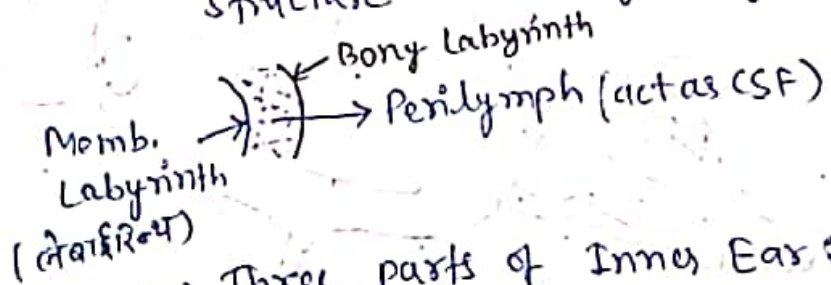 Bony Labyrinth
Perilymph (act as CSF)
Memb.
Labyrinth
(लेबाईरिन्थ)
Three parts of Inner Ear :